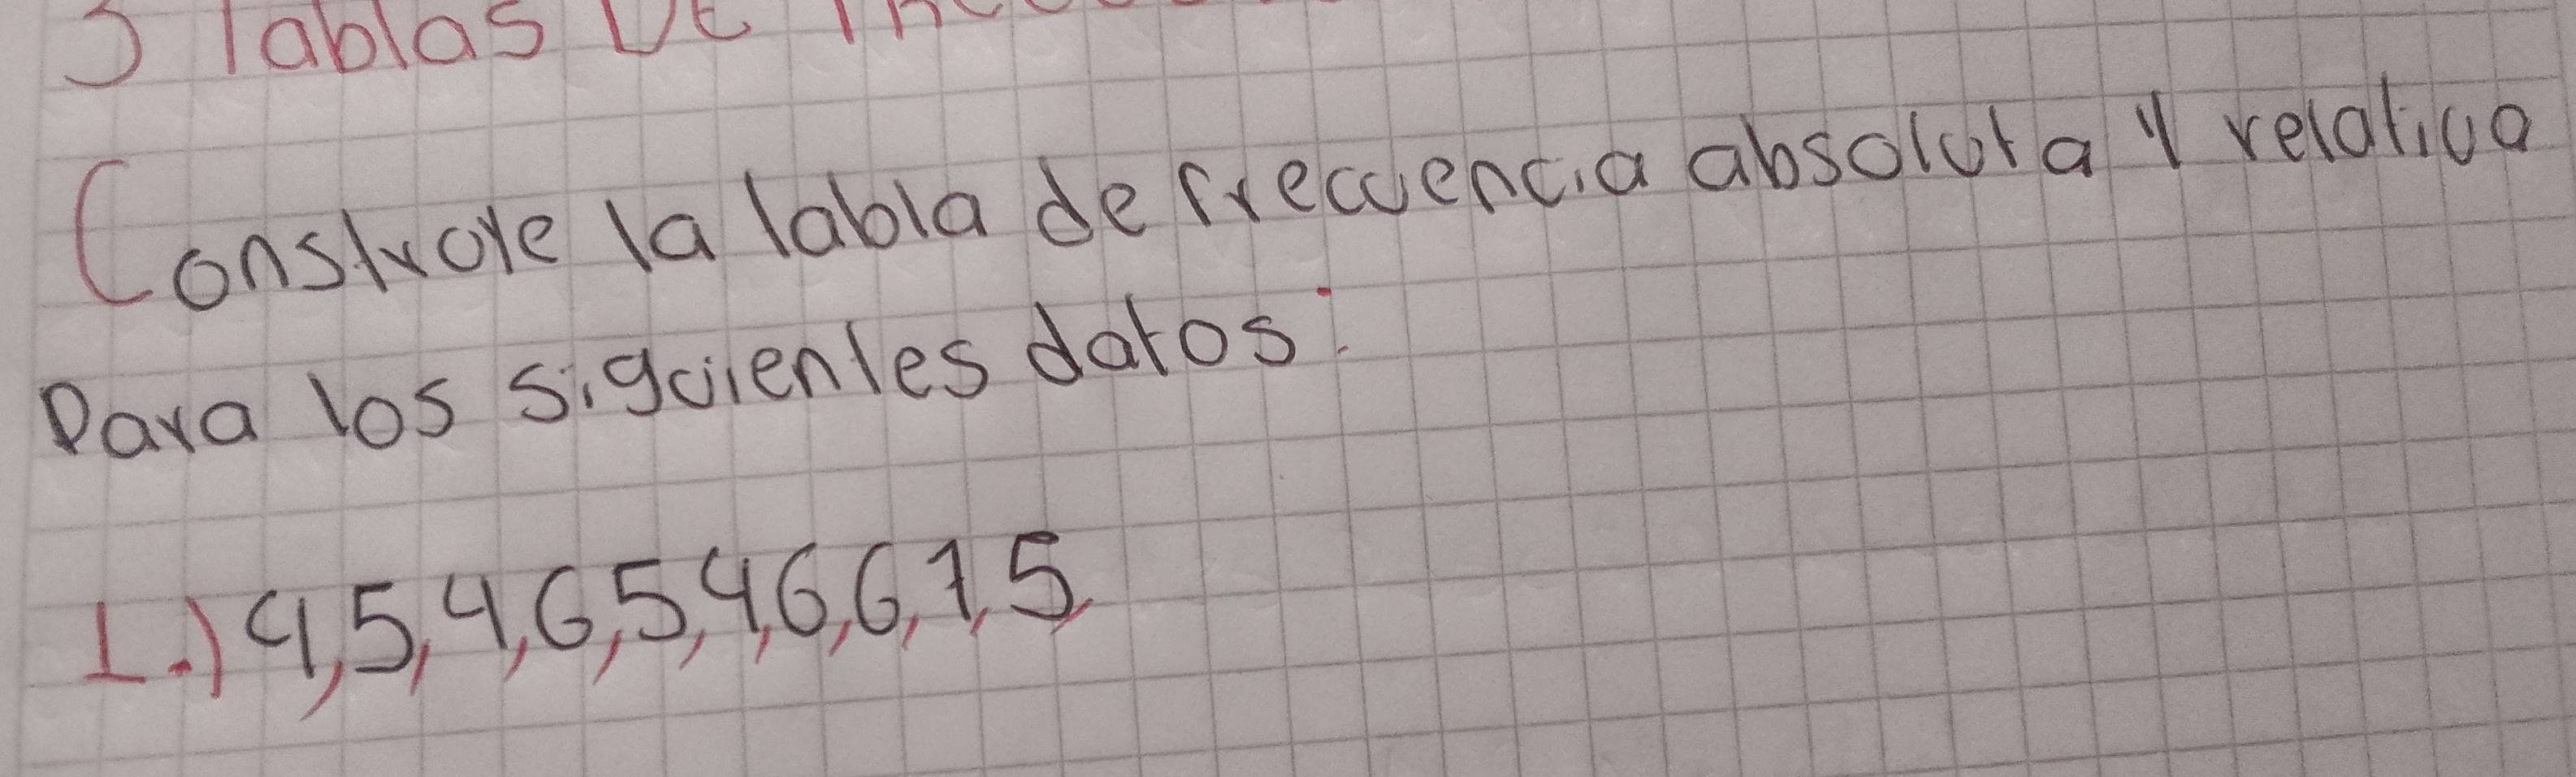 3 Tablas De
Construye la tabla de frecuencia absoluta y relativa
Para los siguientes datos:
1.) 4, 5, 4, 6, 5, 4, 6, 6, 7, 5,